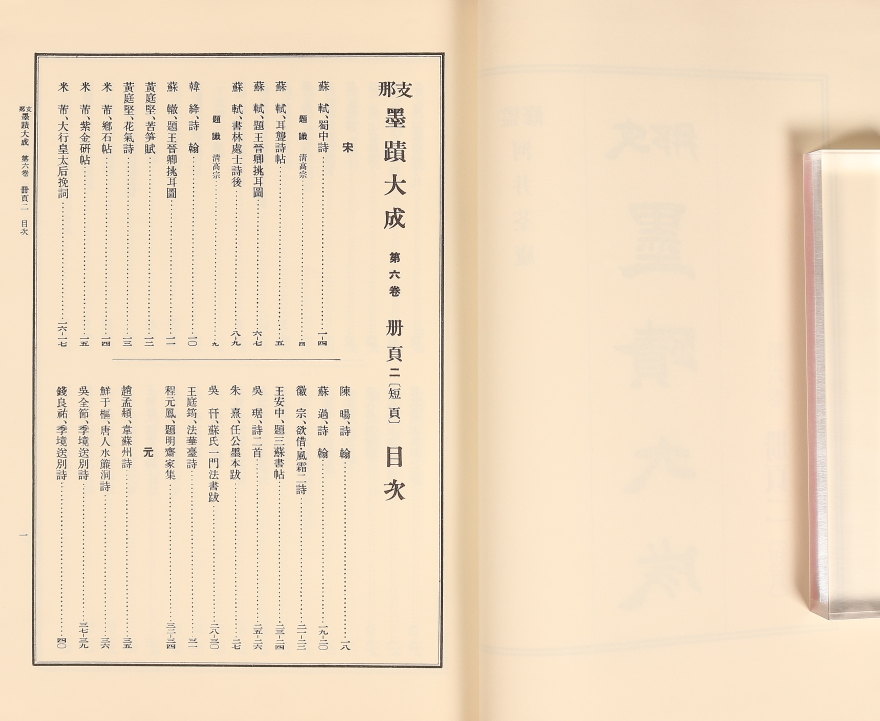 支那墨蹟大成 第六卷 册頁二〔短頁〕 目次
宋
蘇 軾、蜀中詩 一-四
題 識 清高宗 四
蘇 軾、耳聾詩帖 五
蘇 軾、題王晉卿挑耳圖 六-七
蘇 軾、書林處士詩後 八-九
題 識 清高宗 九
韓 絳、詩 翰 一〇
蘇 轍、題王晉卿挑耳圖 一一
黃庭堅、苦笋賦 一二
黃庭堅、花氣詩 一三
米 芾、鄉石帖 一四
米 芾、紫金研帖 一五
米 芾、大行皇太后挽詞 一六-一七
陳 暘、詩 翰 一八
蘇 過、詩 翰 一九-二〇
徽 宗、欲借・風霜二詩 二一-二二
王安中、題三蘇書帖 二三-二四
吳 琚、詩二首 二五-二六
朱 熹、任公墨本跋 二七
吳 幵、蘇氏一門法書跋 二八-三〇
王庭筠、法華臺詩 三一
程元鳳、題明齋家集 三二-三四
元
趙孟頫、韋蘇州詩 三五
鮮于樞、唐人水簾洞詩 三六
吳全節、季境送別詩 三七-三九
錢良祐、季境送別詩 四〇
支那墨蹟大成 第六卷 册頁二 目次
一